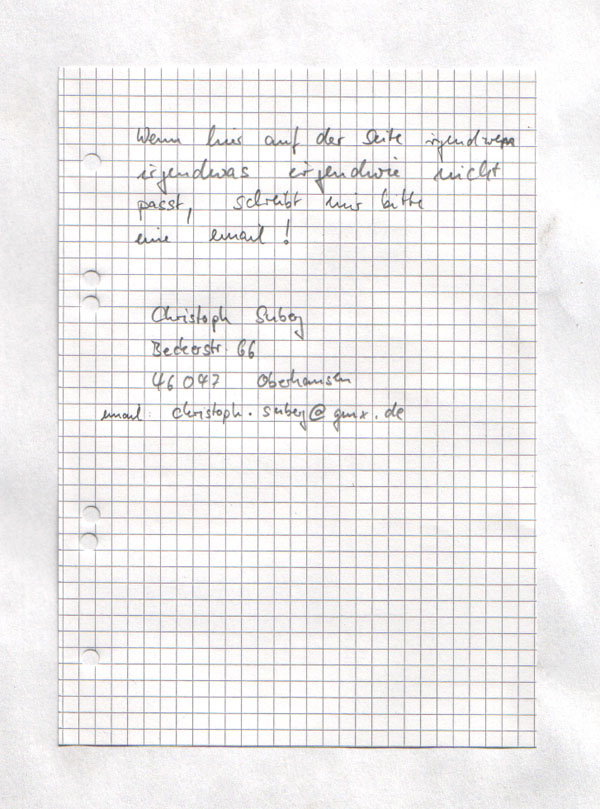 Wenn hier auf der Seite irgendwem
irgendwas irgendwie nicht
passt, schreibt mir bitte
eine email!
Christoph Suberg
Beckerstr. 66
46047 Oberhausen
email: christoph.suberg@gmx.de